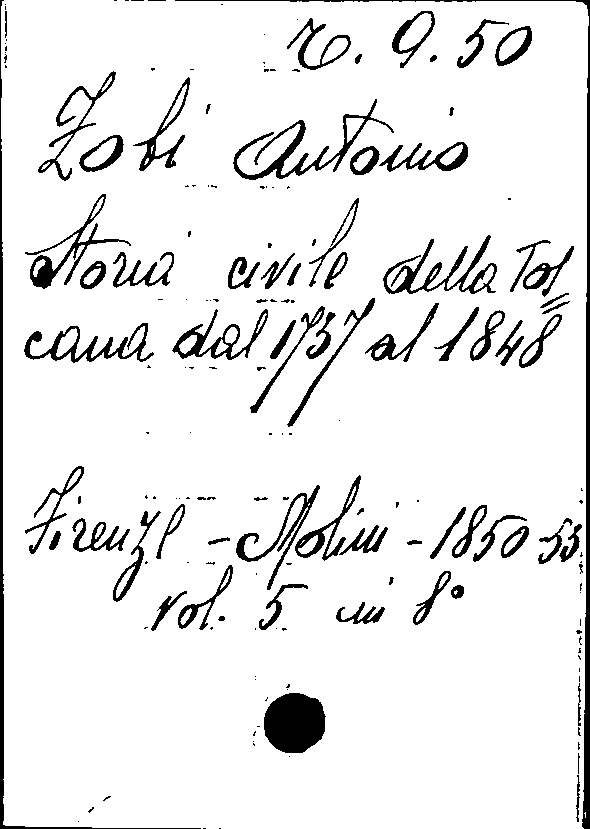 9.50
Zobi Antonio
Storia civile della Tos=
cana dal 1737 al 1848
Firenze - Molini - 1850-53
vol. 5 in 8°